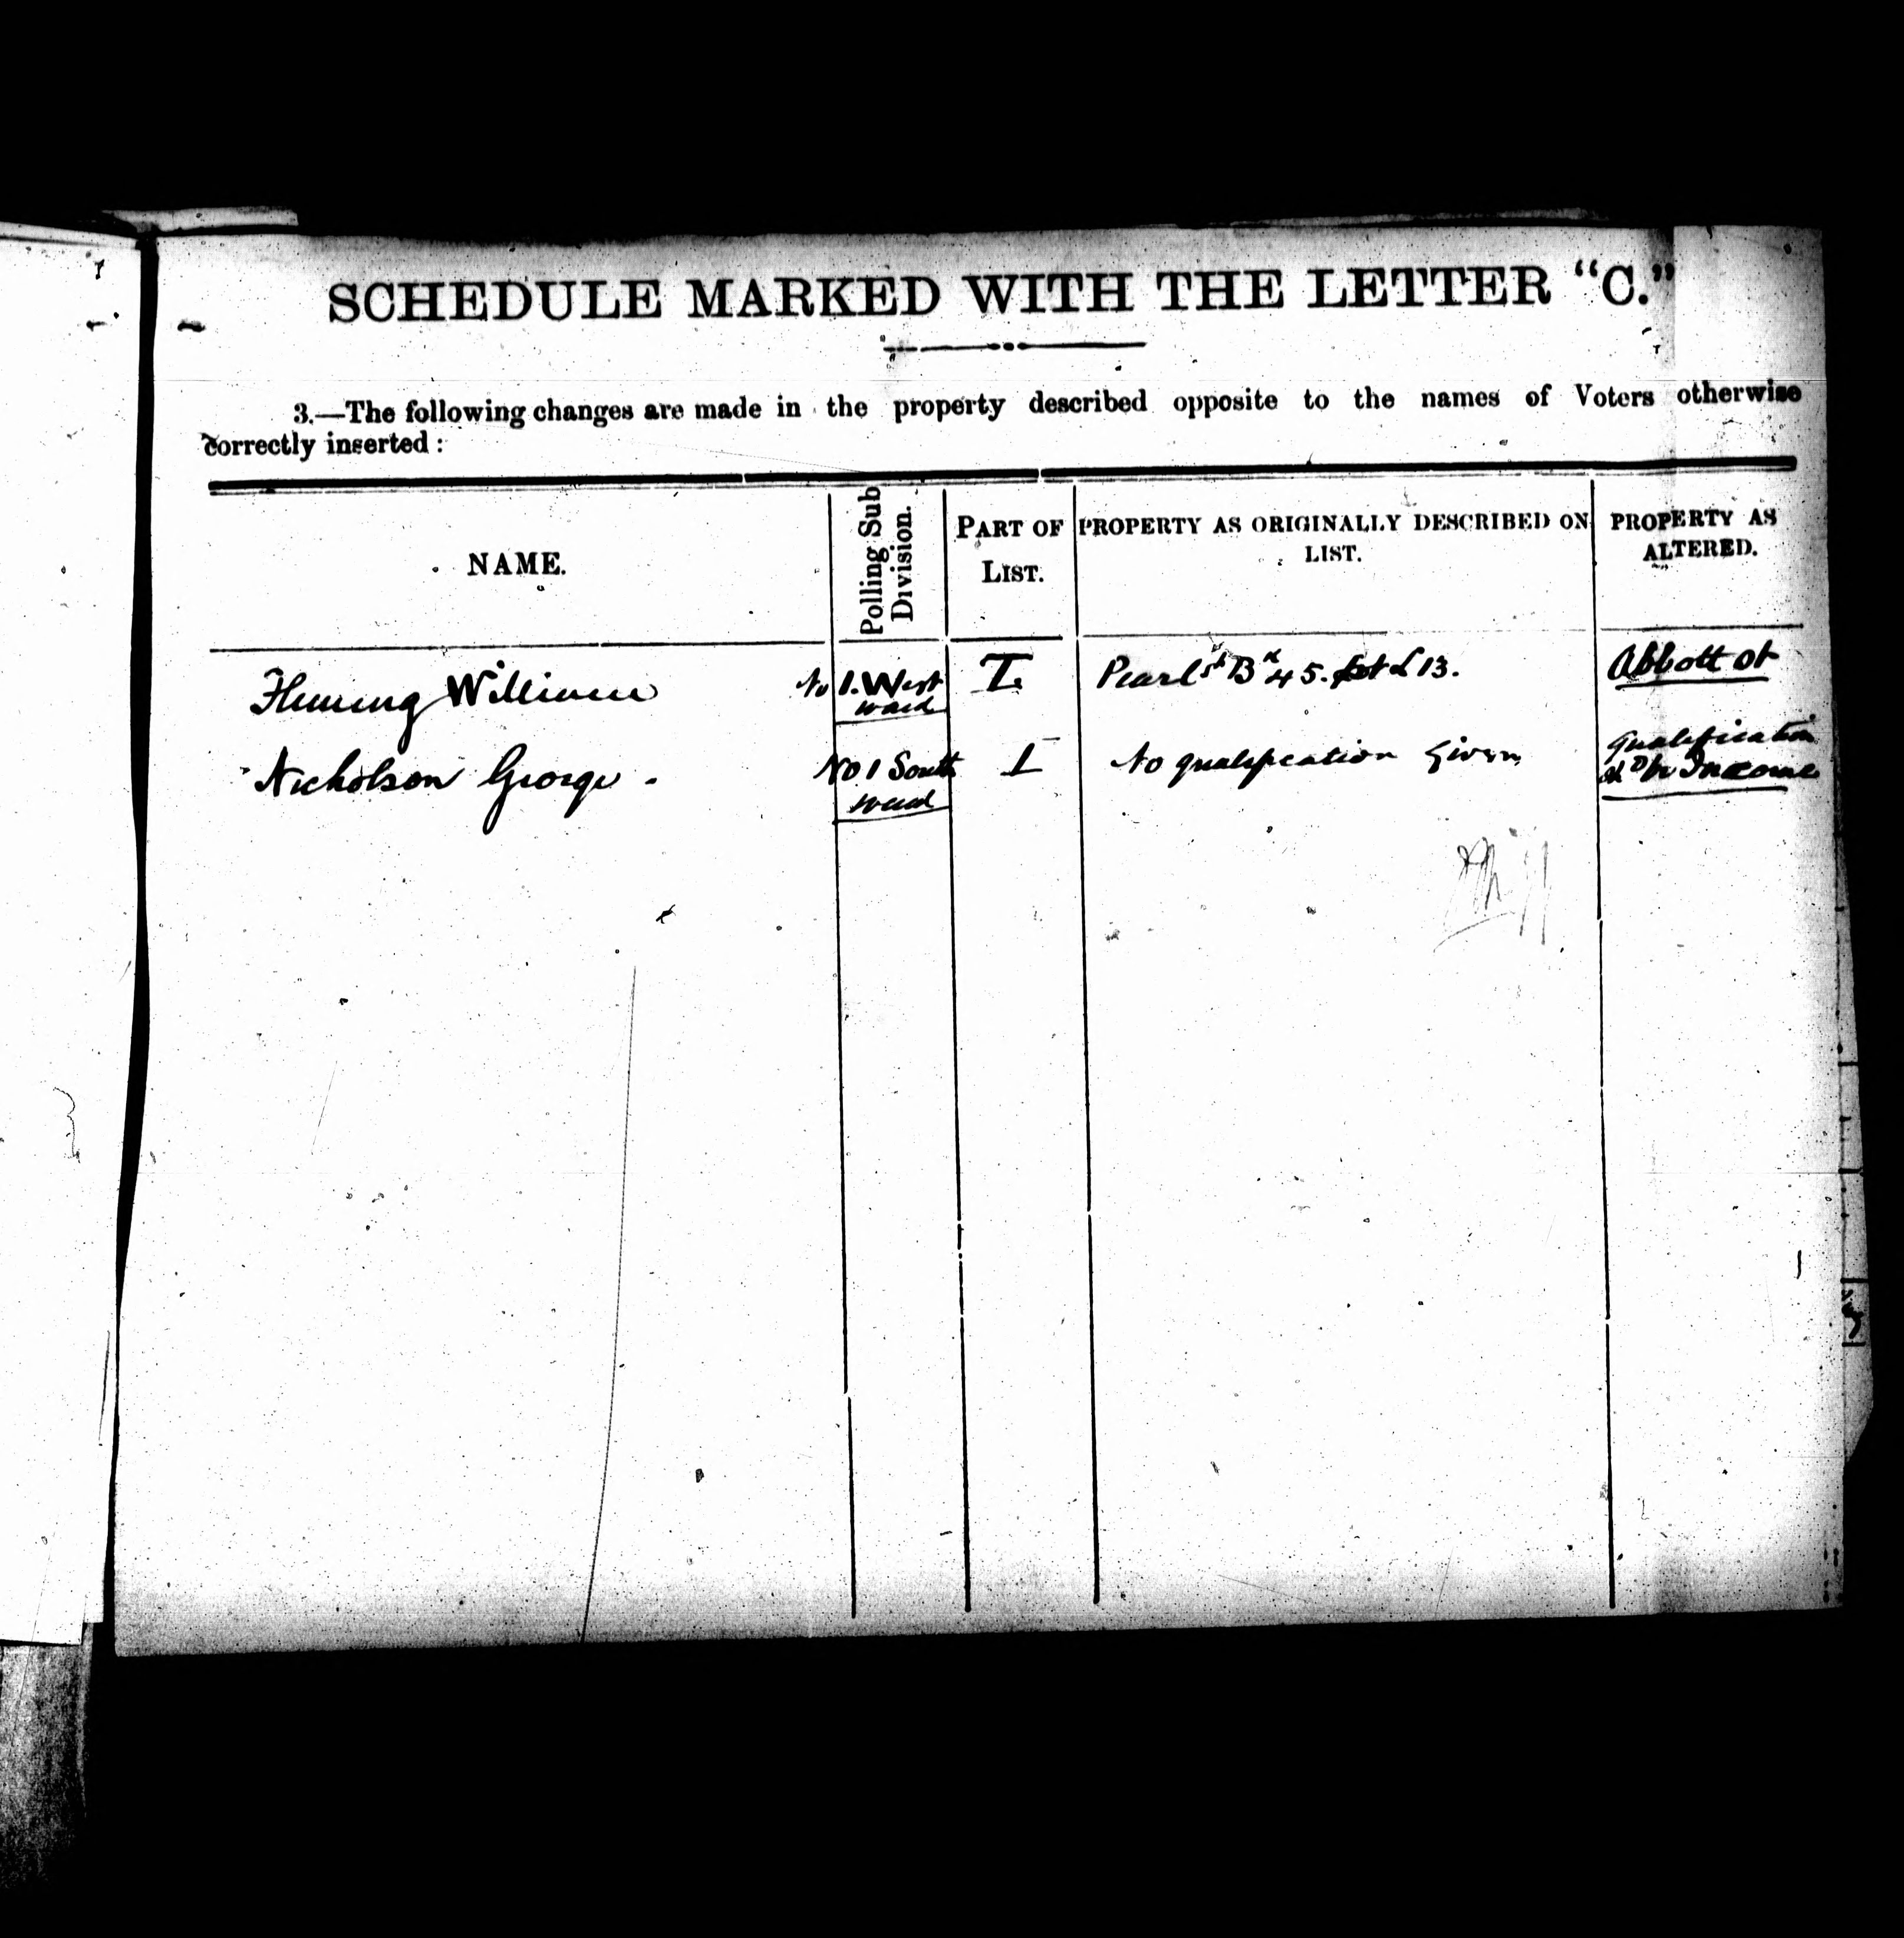 SCHEDULE MARKED WITH THE LETTER "C."
3.—The following changes are made in the property described opposite to the names of Voters otherwise
correctly inserted :
NAME.
Polling Sub
Division.
PART OF
LIST.
PROPERTY AS ORIGINALLY DESCRIBED ON
LIST.
PROPERTY AS
ALTERED.
Fleming William No 1. West
ward
I. Pearl st Bk 45. Lot 13. Abbott St
Nicholson George. No 1 South
ward
I No qualification Given
Qualification
Income